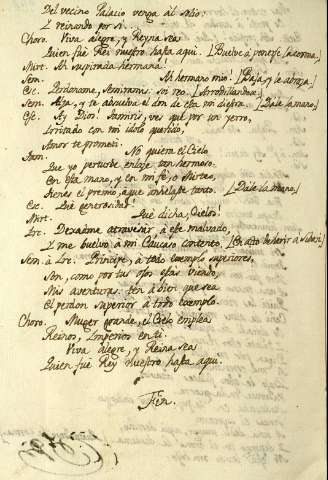 Del vecino Palacio venga al solio:
Y reinando por sí.
Choro. Viva alegre, y Reyna sea
Quien fue Rey nuestro hasta aquí. [Buelve à ponerse la corona.]
Mirt. Mi suspirada hermana!
Sem. Mi hermano mio! [Baja, y le abraza.]
Esc. Perdoname, Semiramis: soi reo. [Arrodillandose.]
Sem. Alza, y te absuelva el don de esta mi diestra. [Dale la mano.]
Esc. Ay Dios. Tamiris, ves que por un yerro,
Irritado con mi idolo querido,
Amor te prometi.
Tam. No quiera el Cielo
Que yo perturbe enlaze tan hermoso.
En esta mano, y en mi fe, o Mirteo,
Tienes el premio, à que anhelaste tanto. [Dale la mano.]
Esc. Què generosidad!
Mirt. Què dicha, Cielos!
Irc. Dexadme atravesar à este malvado,
Y me buelvo à mi Caucaso contento. [En acto de herir à Sibari.]
Sem. à Irc. Principe, à todo exemplo superiores,
Son, como por tus ojos estas viendo,
Mis aventuras: ten à bien que sea
El perdon superior à todo exemplo.
Choro. Muger grande, el Cielo emplea
Reinos, Imperios en ti.
Viva alegre, y Reina sea
Quien fue Rey Nuestro hasta aquí.
Fin.